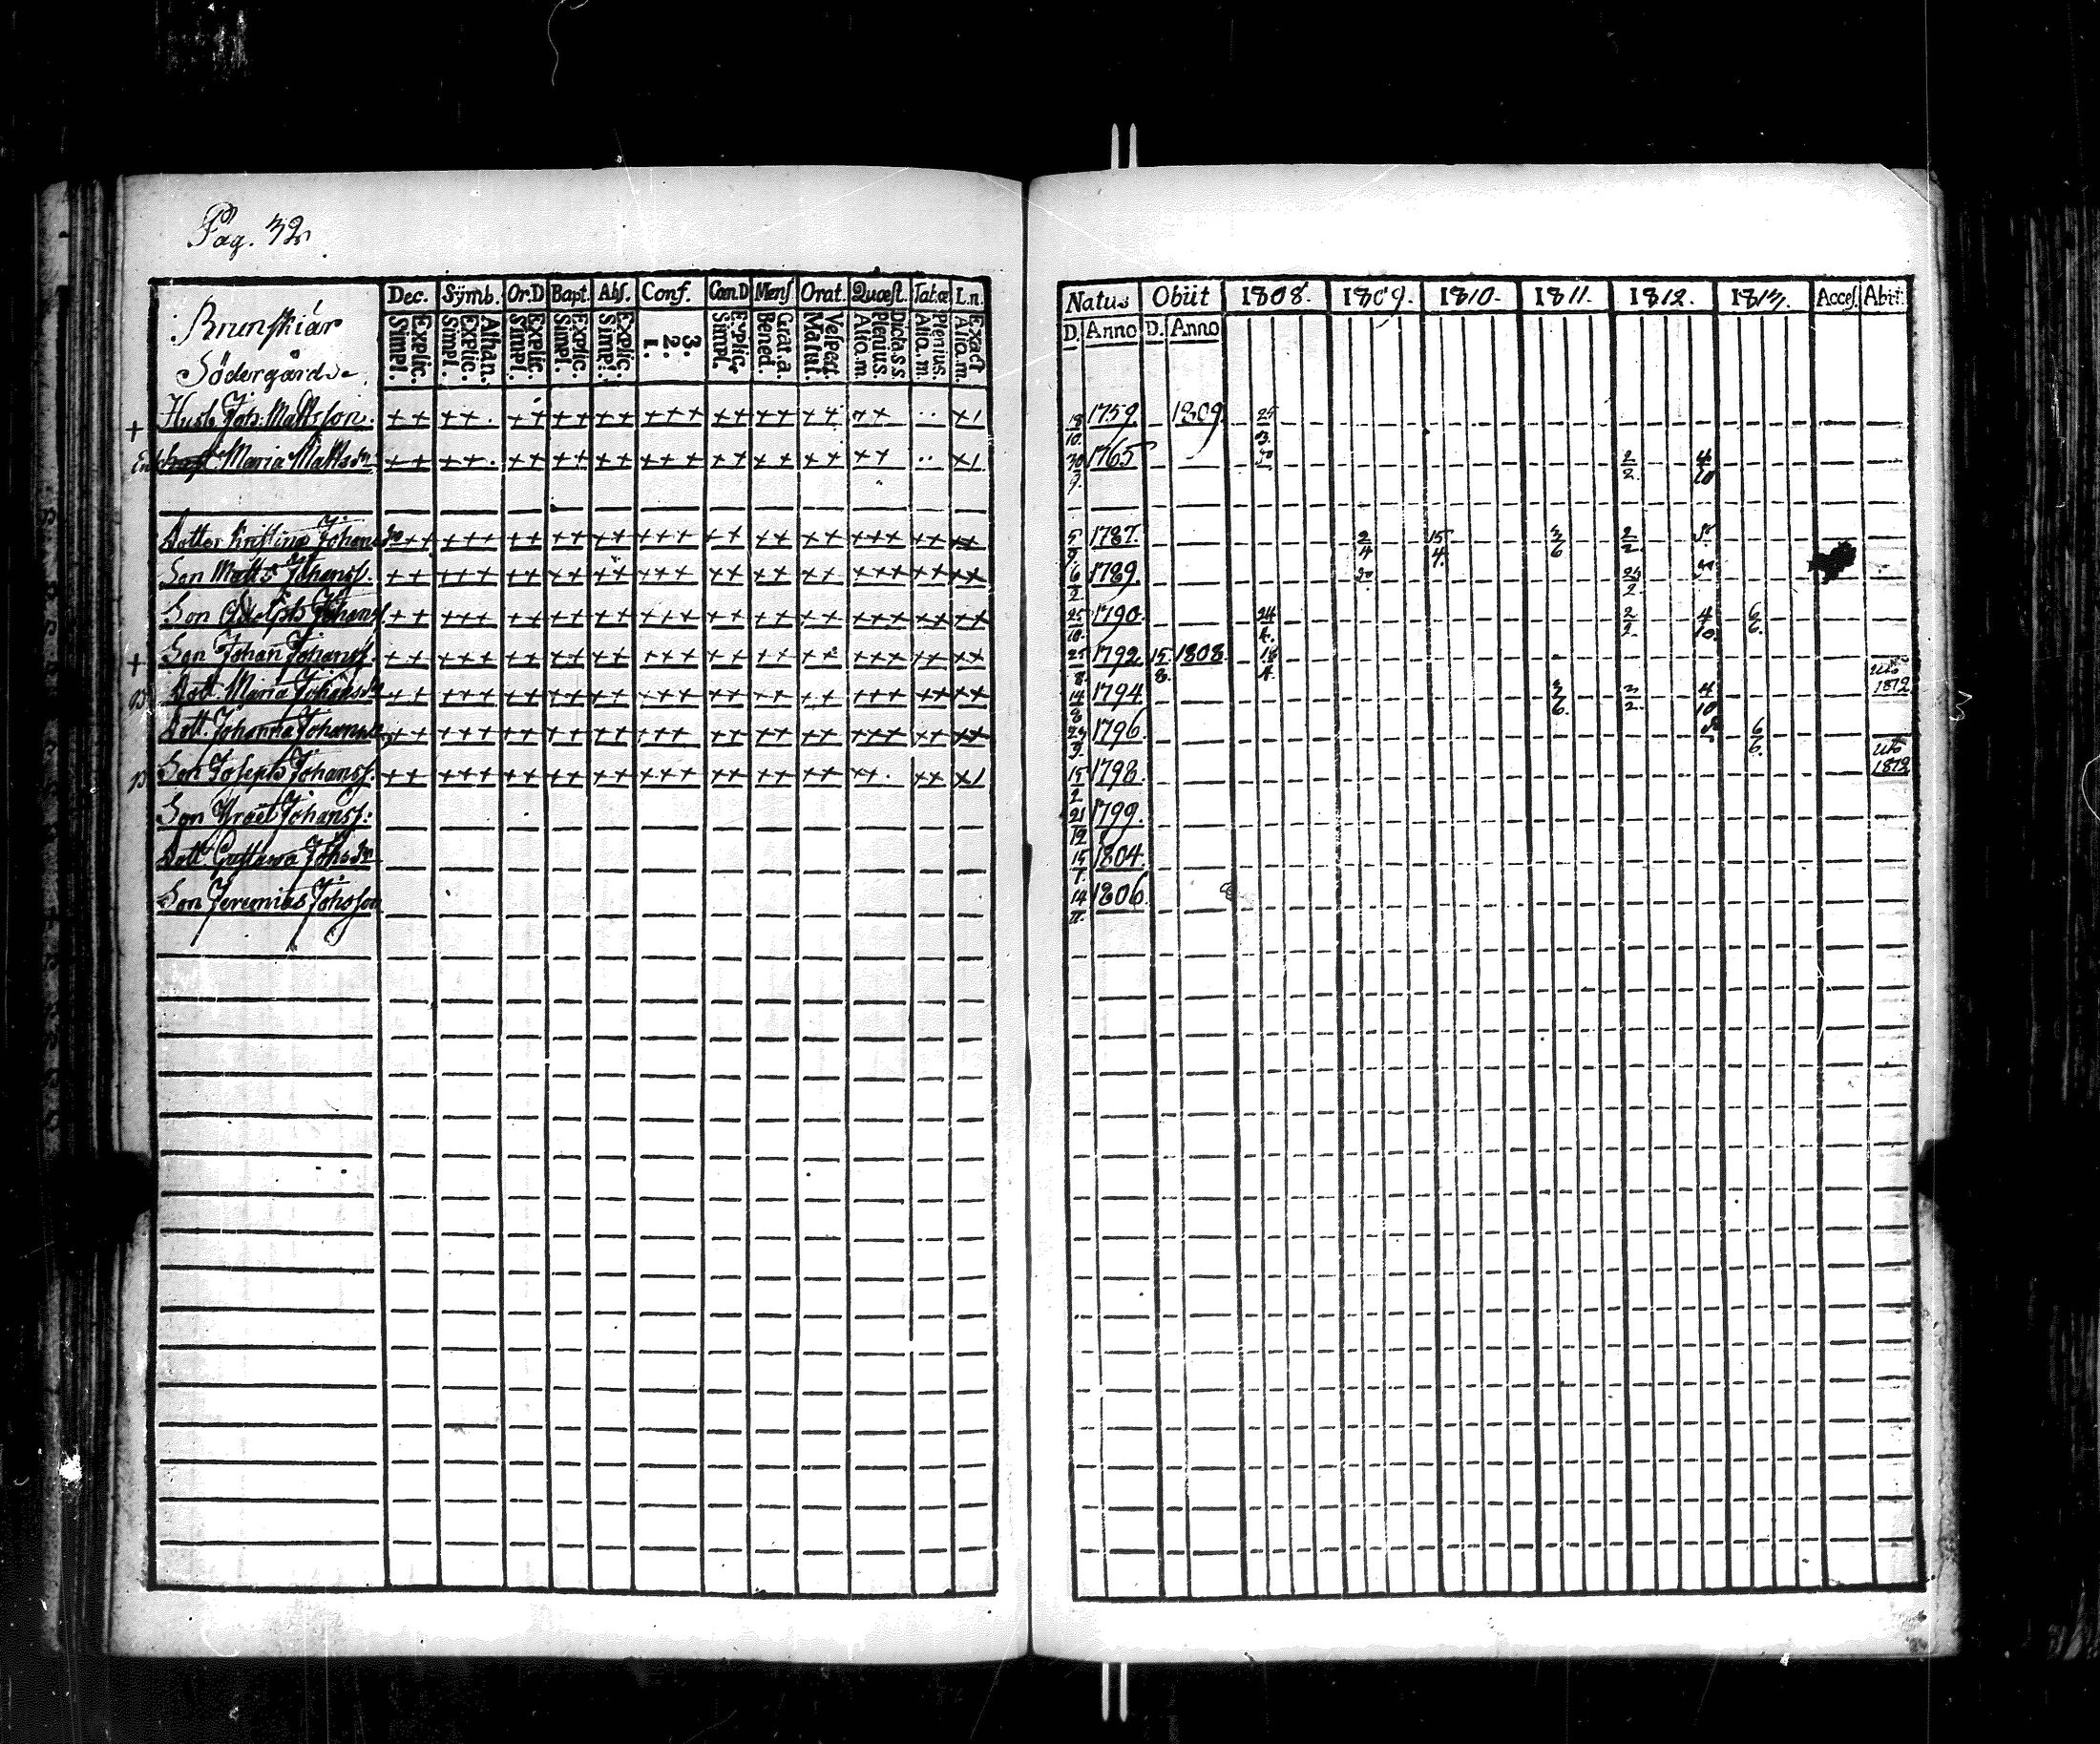 Pag. 32
Brunskiär
Södergårds
Dec. Symb. Or.D Bapt. Abs. Conf. Cœn.D Mens Orat. Quæst. Tab.æ L.n.
Simpl. Explic. Simpl. Explic. Athan. Simpl. Explic. Simpl. Explic. Simpl. Explic. 1. 2. 3. Simpl. Explic. Bened. Grat.a. Matut. Vespert. Alia.m. Plenius. Dicta.s.s. Alia.m. Plenius. Alia.m. Exact
Natus Obiit 1808. 1809. 1810. 1811. 1812. 1813. Acces. Abiit.
D. Anno D. Anno
+ Husb. Joh. Mattsson. ++ ++. ++ ++ ++ +++ ++ ++ ++ ++ .. ×1 18/10. 1759. 1809. 25/3.
Enk Maria Mattsdr. ++ ++. ++ ++ ++ +++ ++ ++ ++ ++ .. ×1 30/9. 1765 2/2. 4/10
Dotter Kristina Johansdr ++ +++ ++ ++ ++ +++ ++ ++ ++ +++ ++ ++ 5/9. 1787. 2/4 15/4. 3/6 2/2.
Son Matts Johanss. ++ +++ ++ ++ ++ +++ ++ ++ ++ +++ ++ ++ 6/2. 1789.
Son Adolph Johanss. ++ +++ ++ ++ ++ +++ ++ ++ ++ +++ ++ ++ 25/10. 1790. 24/4. 2/2. 4/10. 6/6.
+ Son Johan Johanss. ++ +++ ++ ++ ++ +++ ++ ++ ++ +++ ++ ++ 25/8. 1792 15/3. 1808. 18/4.
Dott. Maria Johansdr ++ +++ ++ ++ ++ +++ ++ ++ ++ +++ ++ ++ 14/8 1794 3/6. 2/2. 4/10 1812
Dott. Johanna Johansdr ++ +++ ++ ++ ++ +++ ++ ++ ++ +++ ++ ++ 23/9. 1796. 6/6.
Son Joseph Johanss. ++ +++ ++ ++ ++ +++ ++ ++ ++ ++. ++ ×1 15/2 1798. 1812
Son Israel Johanss: 21/12 1799.
Dott. Gustava Johsdr 15/7. 1804.
Son Jeremias Johsson 14/11. 1806.